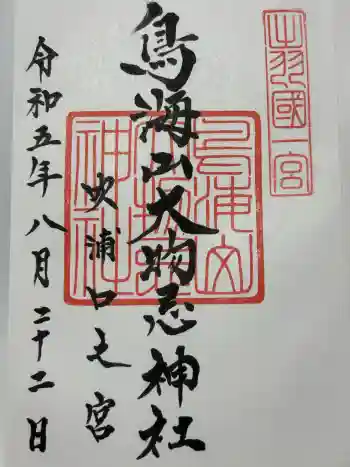 出羽國一宮
鳥海山大物忌神社
吹浦口之宮
令和五年八月二十二日